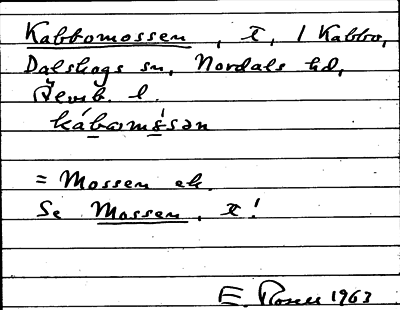 Kabbomossen, t, i Kabbo,
Dalskogs sn, Nordals hd,
Älvsb. l.
kábɑmåsən
= Mossen ek.
Se Mossen, t!
E. Rosell 1963